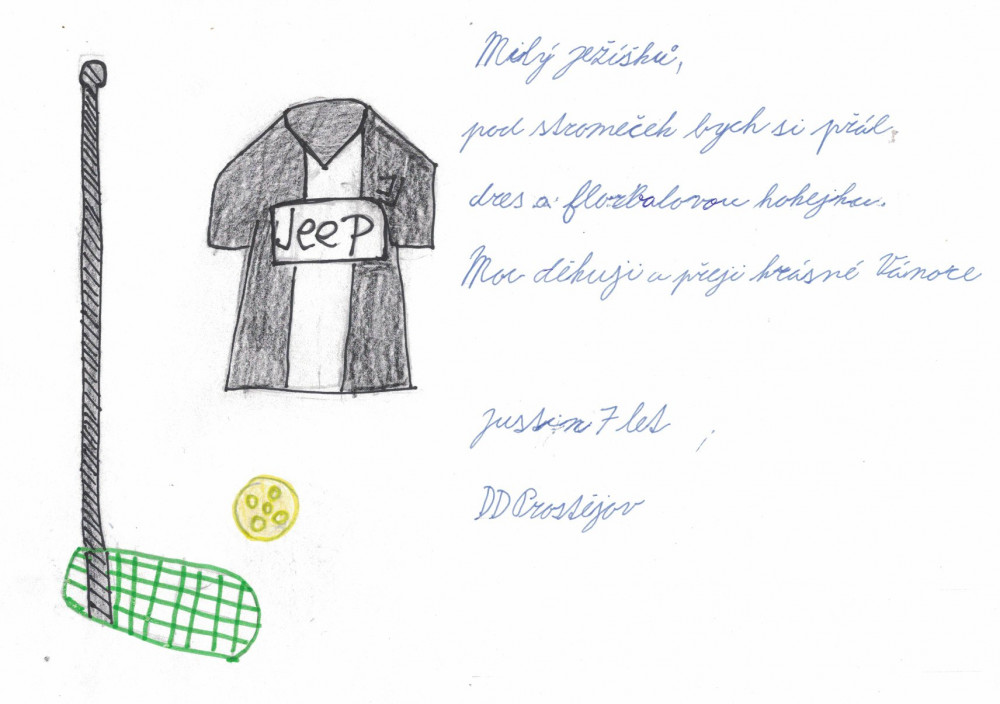 Milý ježíšku,
pod stromeček bych si přál
dres a florbalovou hokejku.
Moc děkuji a přeji krásné Vánoce
J
Jeep
justin 7 let
DD Prostějov